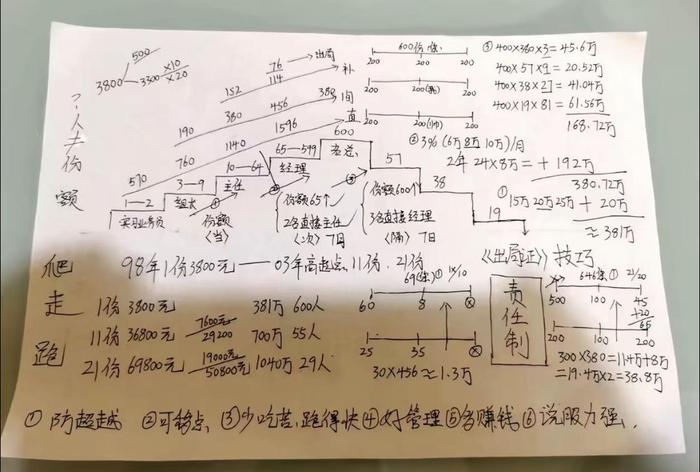 500
3800
3300 ×10
×20
76
114 出局
152 补
380 456 380 间
190 直
760 1140 1596 600
570
65—599 老总
10—64 经理
3—9 主任
1—2 组长
实习业务员
?人≠份额
份额
〈当〉
份额65个
2名直接主任
〈次〉7日
份额600个
3名直接经理
〈隔〉7日
57
38
19
600份
200 200 200
200 200 200
200 200 200
③ 400×380×3=45.6万
400×57×9=20.52万
400×38×27=41.04万
400×19×81=61.56万
168.72万
② 3% (6万 8万 10万)/月
2年 24×8万=+192万
380.72万
① 15万 20万 25万 + 20万
≈381万
98年1份3800元——03年高起点、11份、21份
爬 1份 3800元 381万 600人
走 11份 36800元 7600元/29200 700万 55人
跑 21份 69800元 19000元/50800元 1040万 29人
① 1x/10
60 8 ⓧ
25 35 ⓧ
30×456≈1.3万
《出局证》技巧
责任制
646 ① 21/20
500 100 45
+20
65
200 100 200
300×380=11.4万+8万
=19.4万×2=38.8万
①防超越 ②可移点 ③少吃苦、跑得快 ④好管理 ⑤多赚钱 ⑥说服力强.